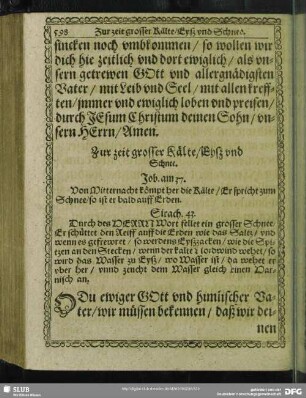 598 Zur zeit grosser Kälte/Eysz vnd Schnee.
sincken noch vmbkommen / so wollen wir
dich hie zeitlich vnd dort ewiglich / als vn-
sern getrewen GOtt vnd allergnädigsten
Vater / mit Leib vnd Seel / mit allen kreff-
ten / jmmer vnd ewiglich loben vnd preisen /
durch JEsum Christum deinen Sohn / vn-
sern HErrn / Amen.
Zur zeit grosser Kälte / Eysz vnd
Schnee.
Job. am 37.
Von Mitternacht kömpt her die Kälte / Er spricht zum
Schnee / so ist er bald auff Erden.
Sirach. 43.
Durch des HERRN Wort fellet ein grosser Schnee /
Er schüttet den Reiff auff die Erden wie das Saltz / vnd
wenn es gefrewret / so werdens Eyszzacken / wie die Spi-
tzen an den Stecken / wenn der kalte Nordwind wehet / so
wird das Wasser zu Eysz / wo Wasser ist / da wehet er
vber her / vnnd zeucht dem Wasser gleich einen Har-
nisch an.
O Du ewiger GOtt vnd himlischer Va-
ter / wir müssen bekennen / dasz wir dei-
nen
SLUB
Wir führen Wissen.
gefördert von der
Deutschen Forschungsgemeinschaft
DFG